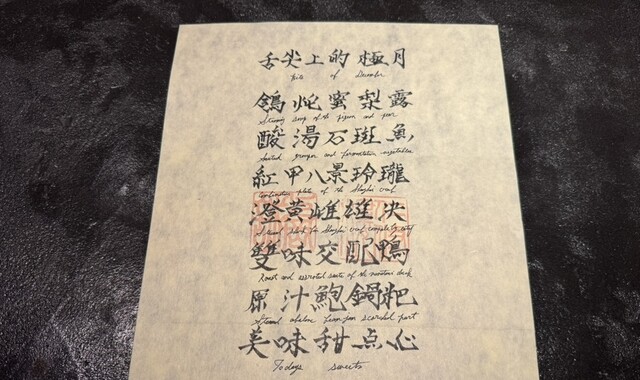 舌尖上的 極月
of December
鴿炖蜜梨露
soup of the pigeon and pear
酸湯石斑魚
grouper and fermentation vegetables
紅甲八景玲瓏
Combination plate of the Shanghai crab
澄黄雌雄決
Shanghai crab
雙味交配鴨
Roast and assorted saute of the duck
原汁鮑鍋粑
abalone scorched
美味甜点心
Todays sweets